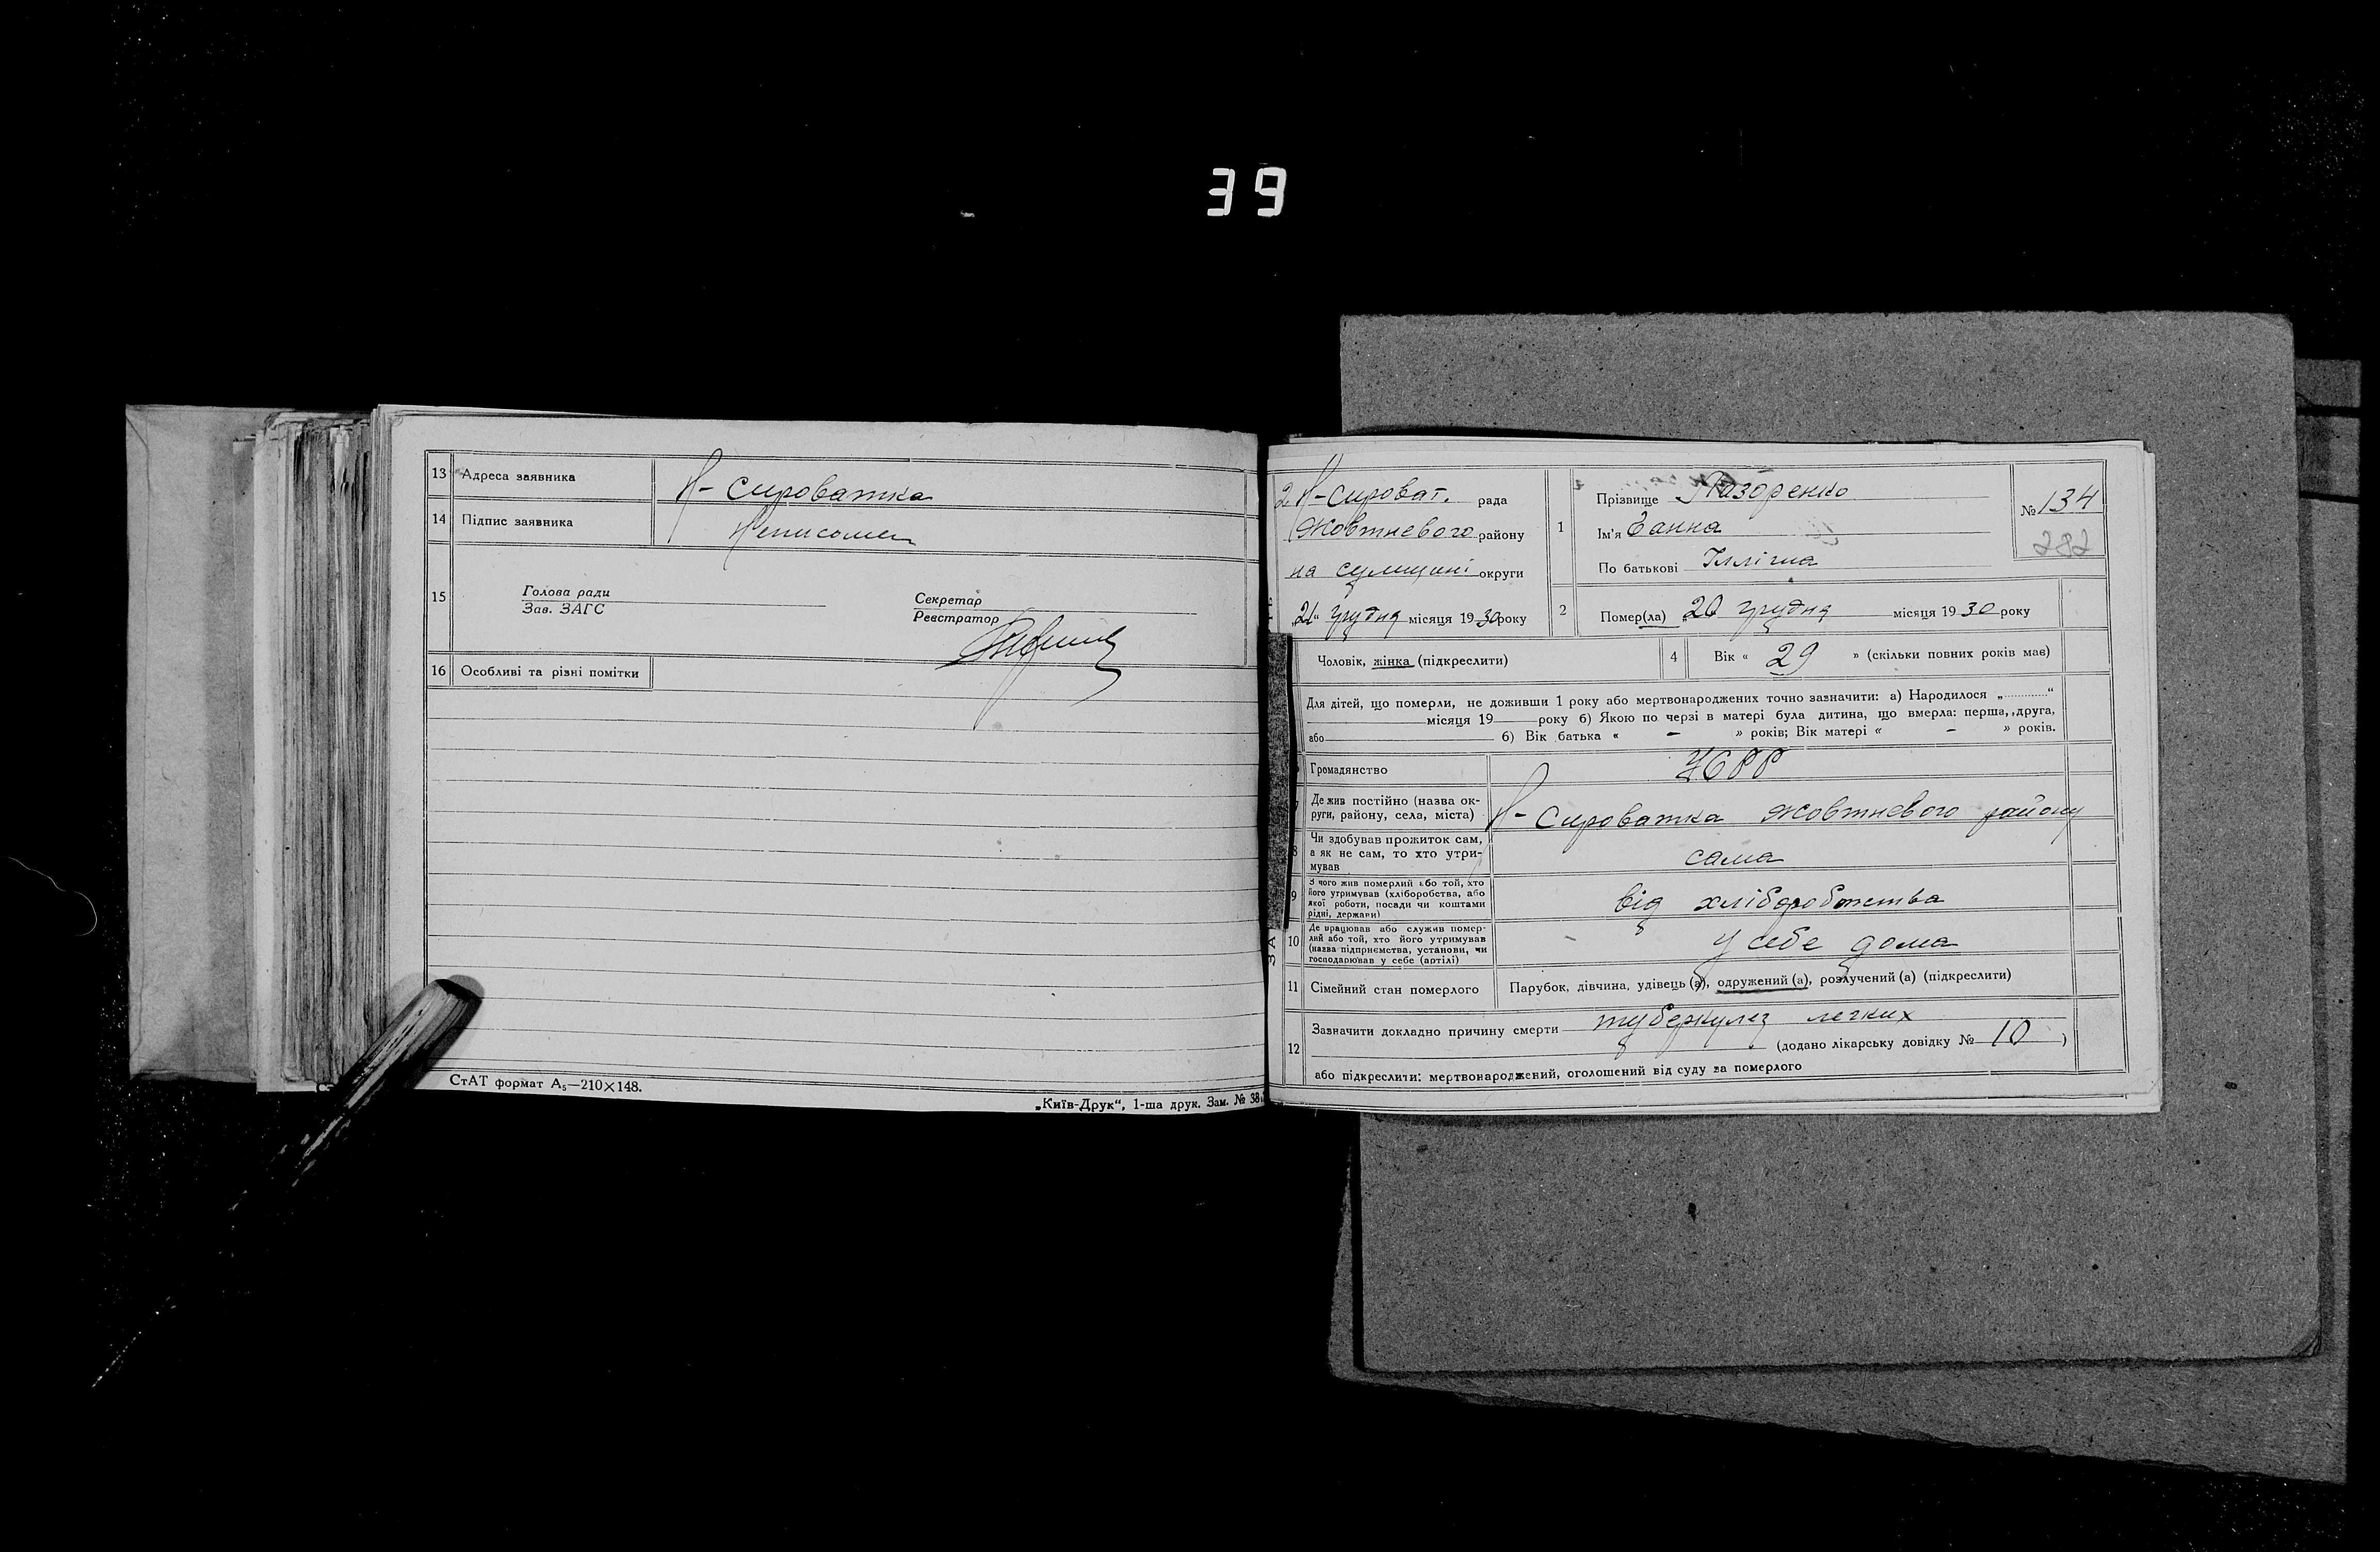 39
13 Адреса заявника Н-Сироватка
14 Підпис заявника Неписьмен
15 Голова ради
Зав. ЗАГС
Секретар
Реєстратор
16 Особливі та різні помітки
СтАТ формат А₅—210×148.
„Київ-Друк“, 1-ша друк. Зам. № 38
Н-Сироват. рада
Жовтневого району
на Сумщині округи
„21“ грудня місяця 1930 року
1 Прізвище
Ім'я Ганна
По батькові Ілліша
№ 134
282
2 Помер(ла) „20 грудня місяця 1930 року
Чоловік, жінка (підкреслити)
4 Вік « 29 » (скільки повних років має)
Для дітей, що померли, не доживши 1 року або мертвонароджених точно зазначити: а) Народилося „............“
місяця 19 року б) Якою по черзі в матері була дитина, що вмерла: перша, друга,
або б) Вік батька « – » років; Вік матері « – » років.
Громадянство УСРР
7 Де жив постійно (назва ок-
руги, району, села, міста) Н-Сироватка Жовтневого району
8 Чи здобував прожиток сам,
а як не сам, то хто утри-
мував сама
9 З чого жив померлий або той, хто
його утримував (хліборобства, або
якої роботи, посади чи коштами
рідні, держави) від хліборобства
10 Де працював або служив помер-
лий або той, хто його утримував
(назва підприємства, установи, чи
господарював у себе (артілі) у себе дома
11 Сімейний стан померлого Парубок, дівчина, удівець (а), одружений (а), розлучений (а) (підкреслити)
12 Зазначити докладно причину смерти туберкулез легких
(додано лікарську довідку № 10 )
або підкреслити: мертвонароджений, оголошений від суду за померлого